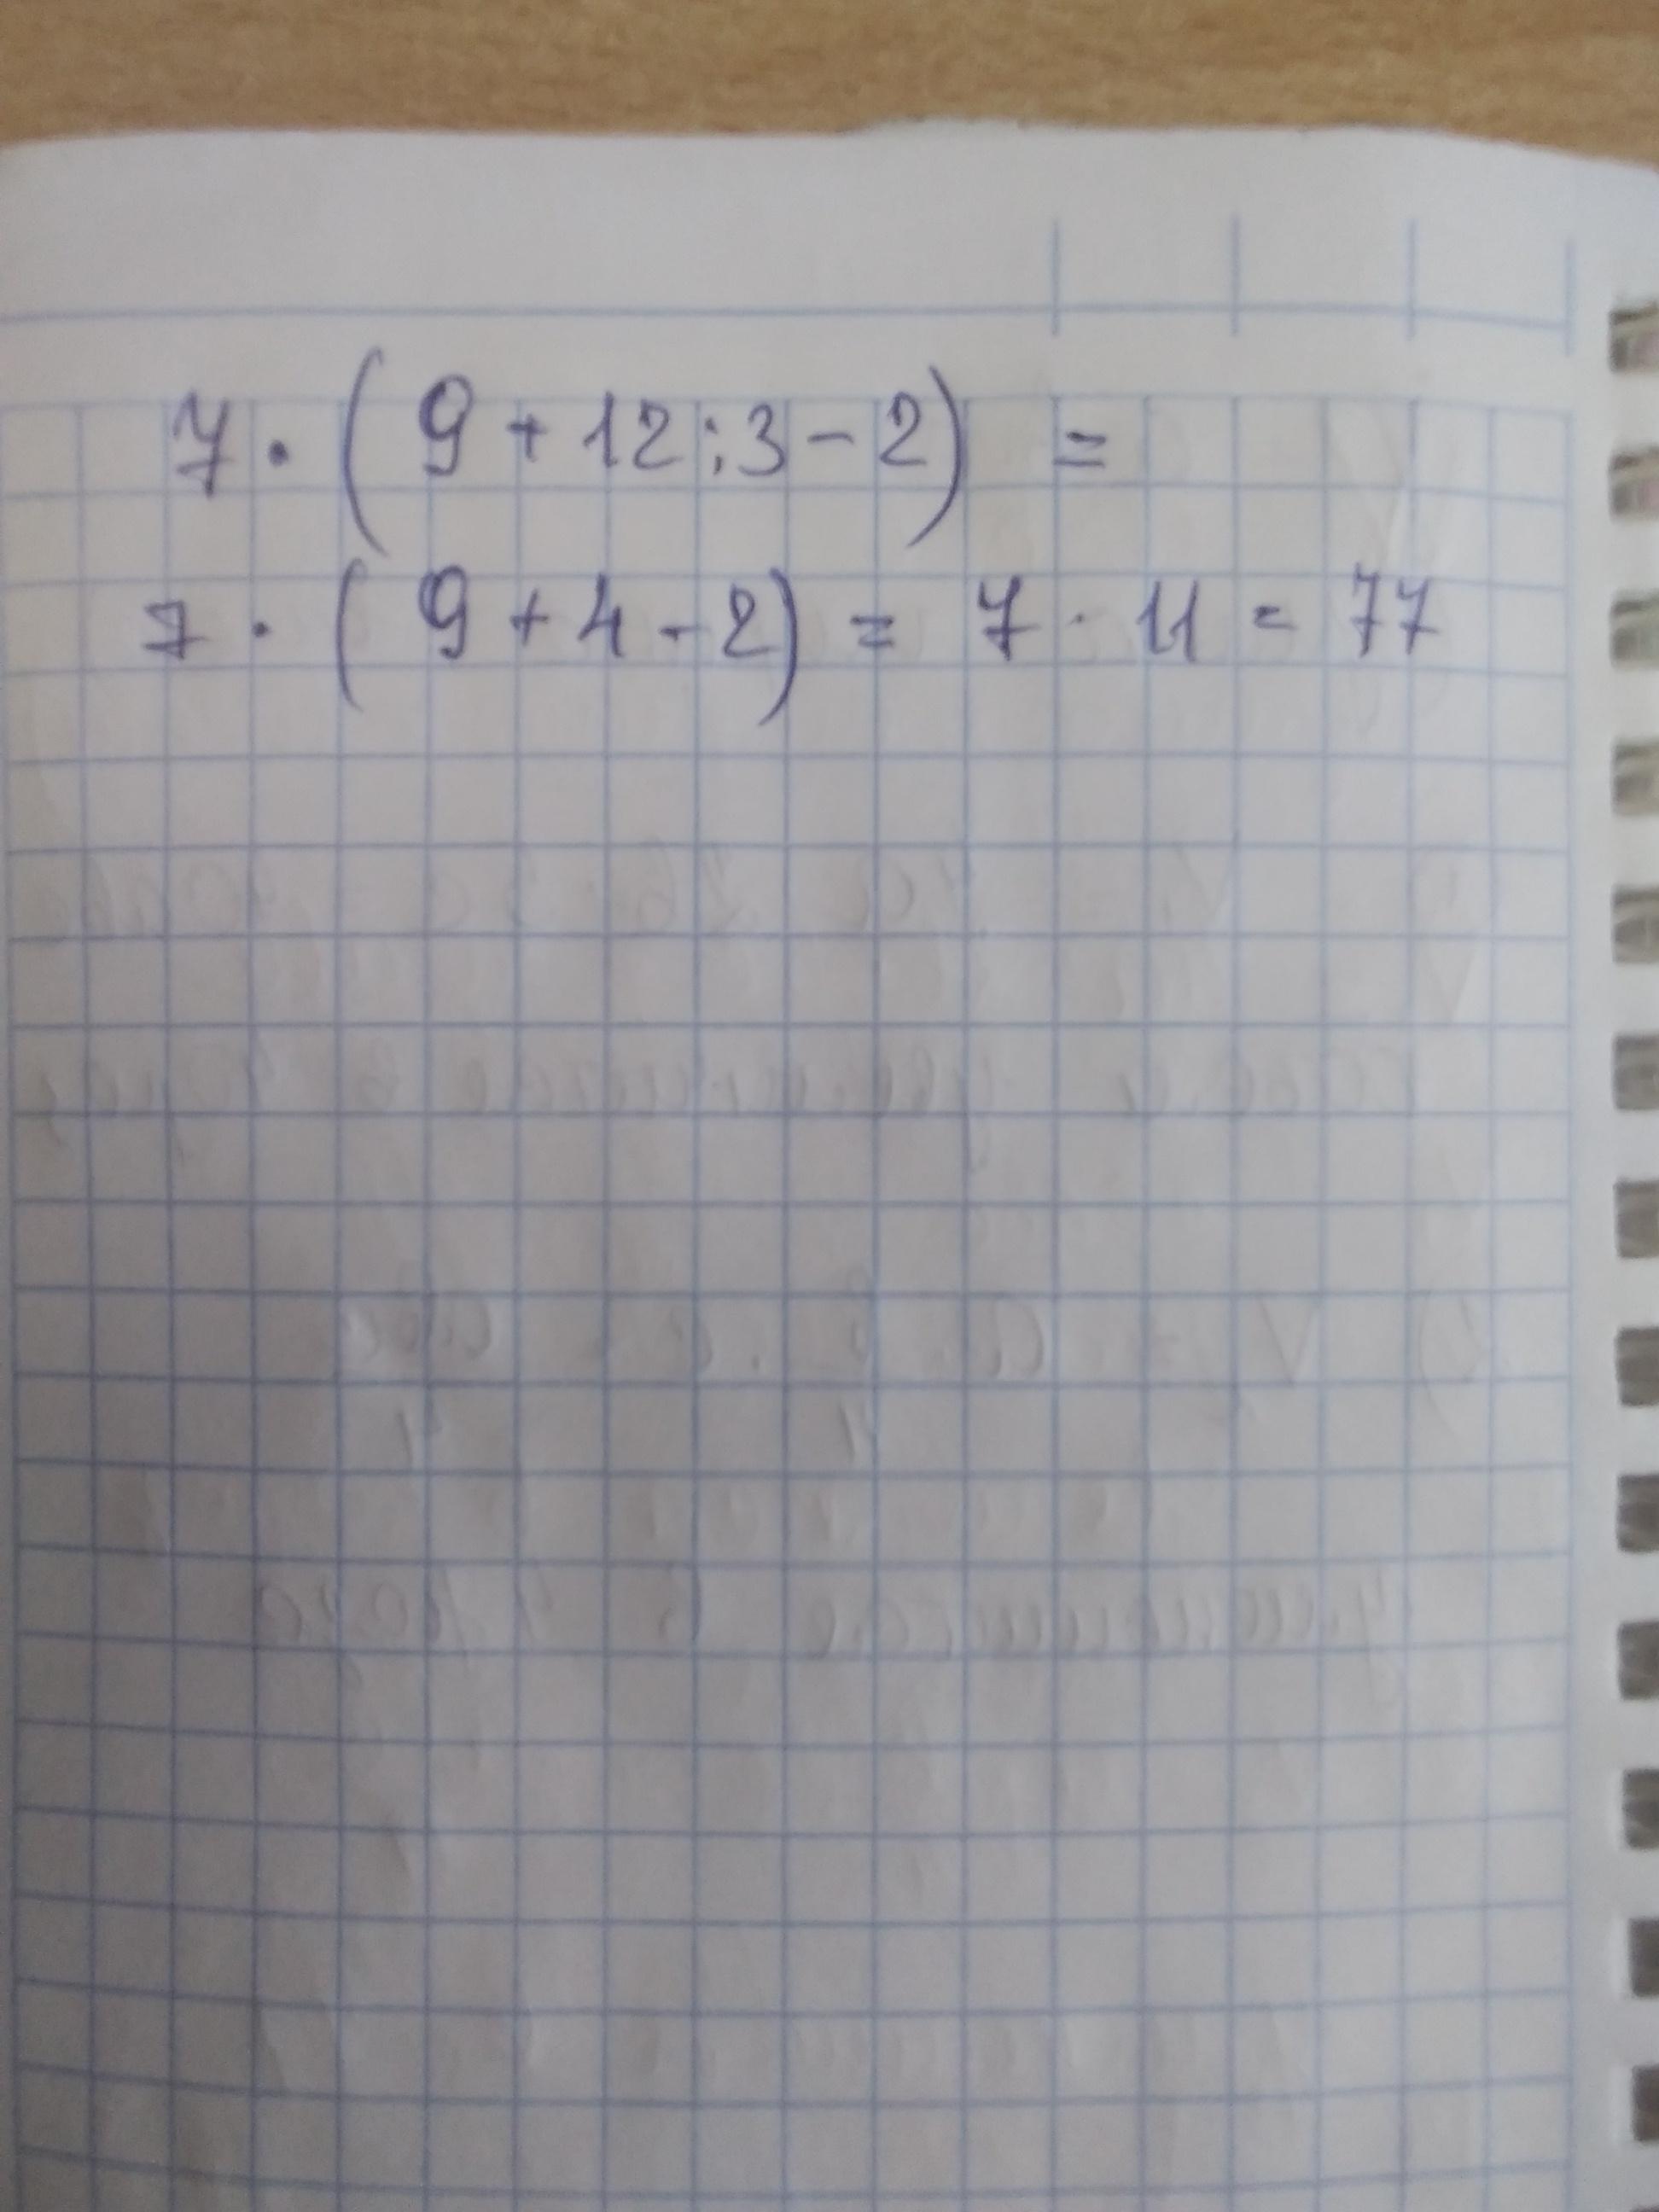 7 · ( 9 + 12 : 3 - 2 ) =
7 · ( 9 + 4 - 2 ) = 7 · 11 = 77